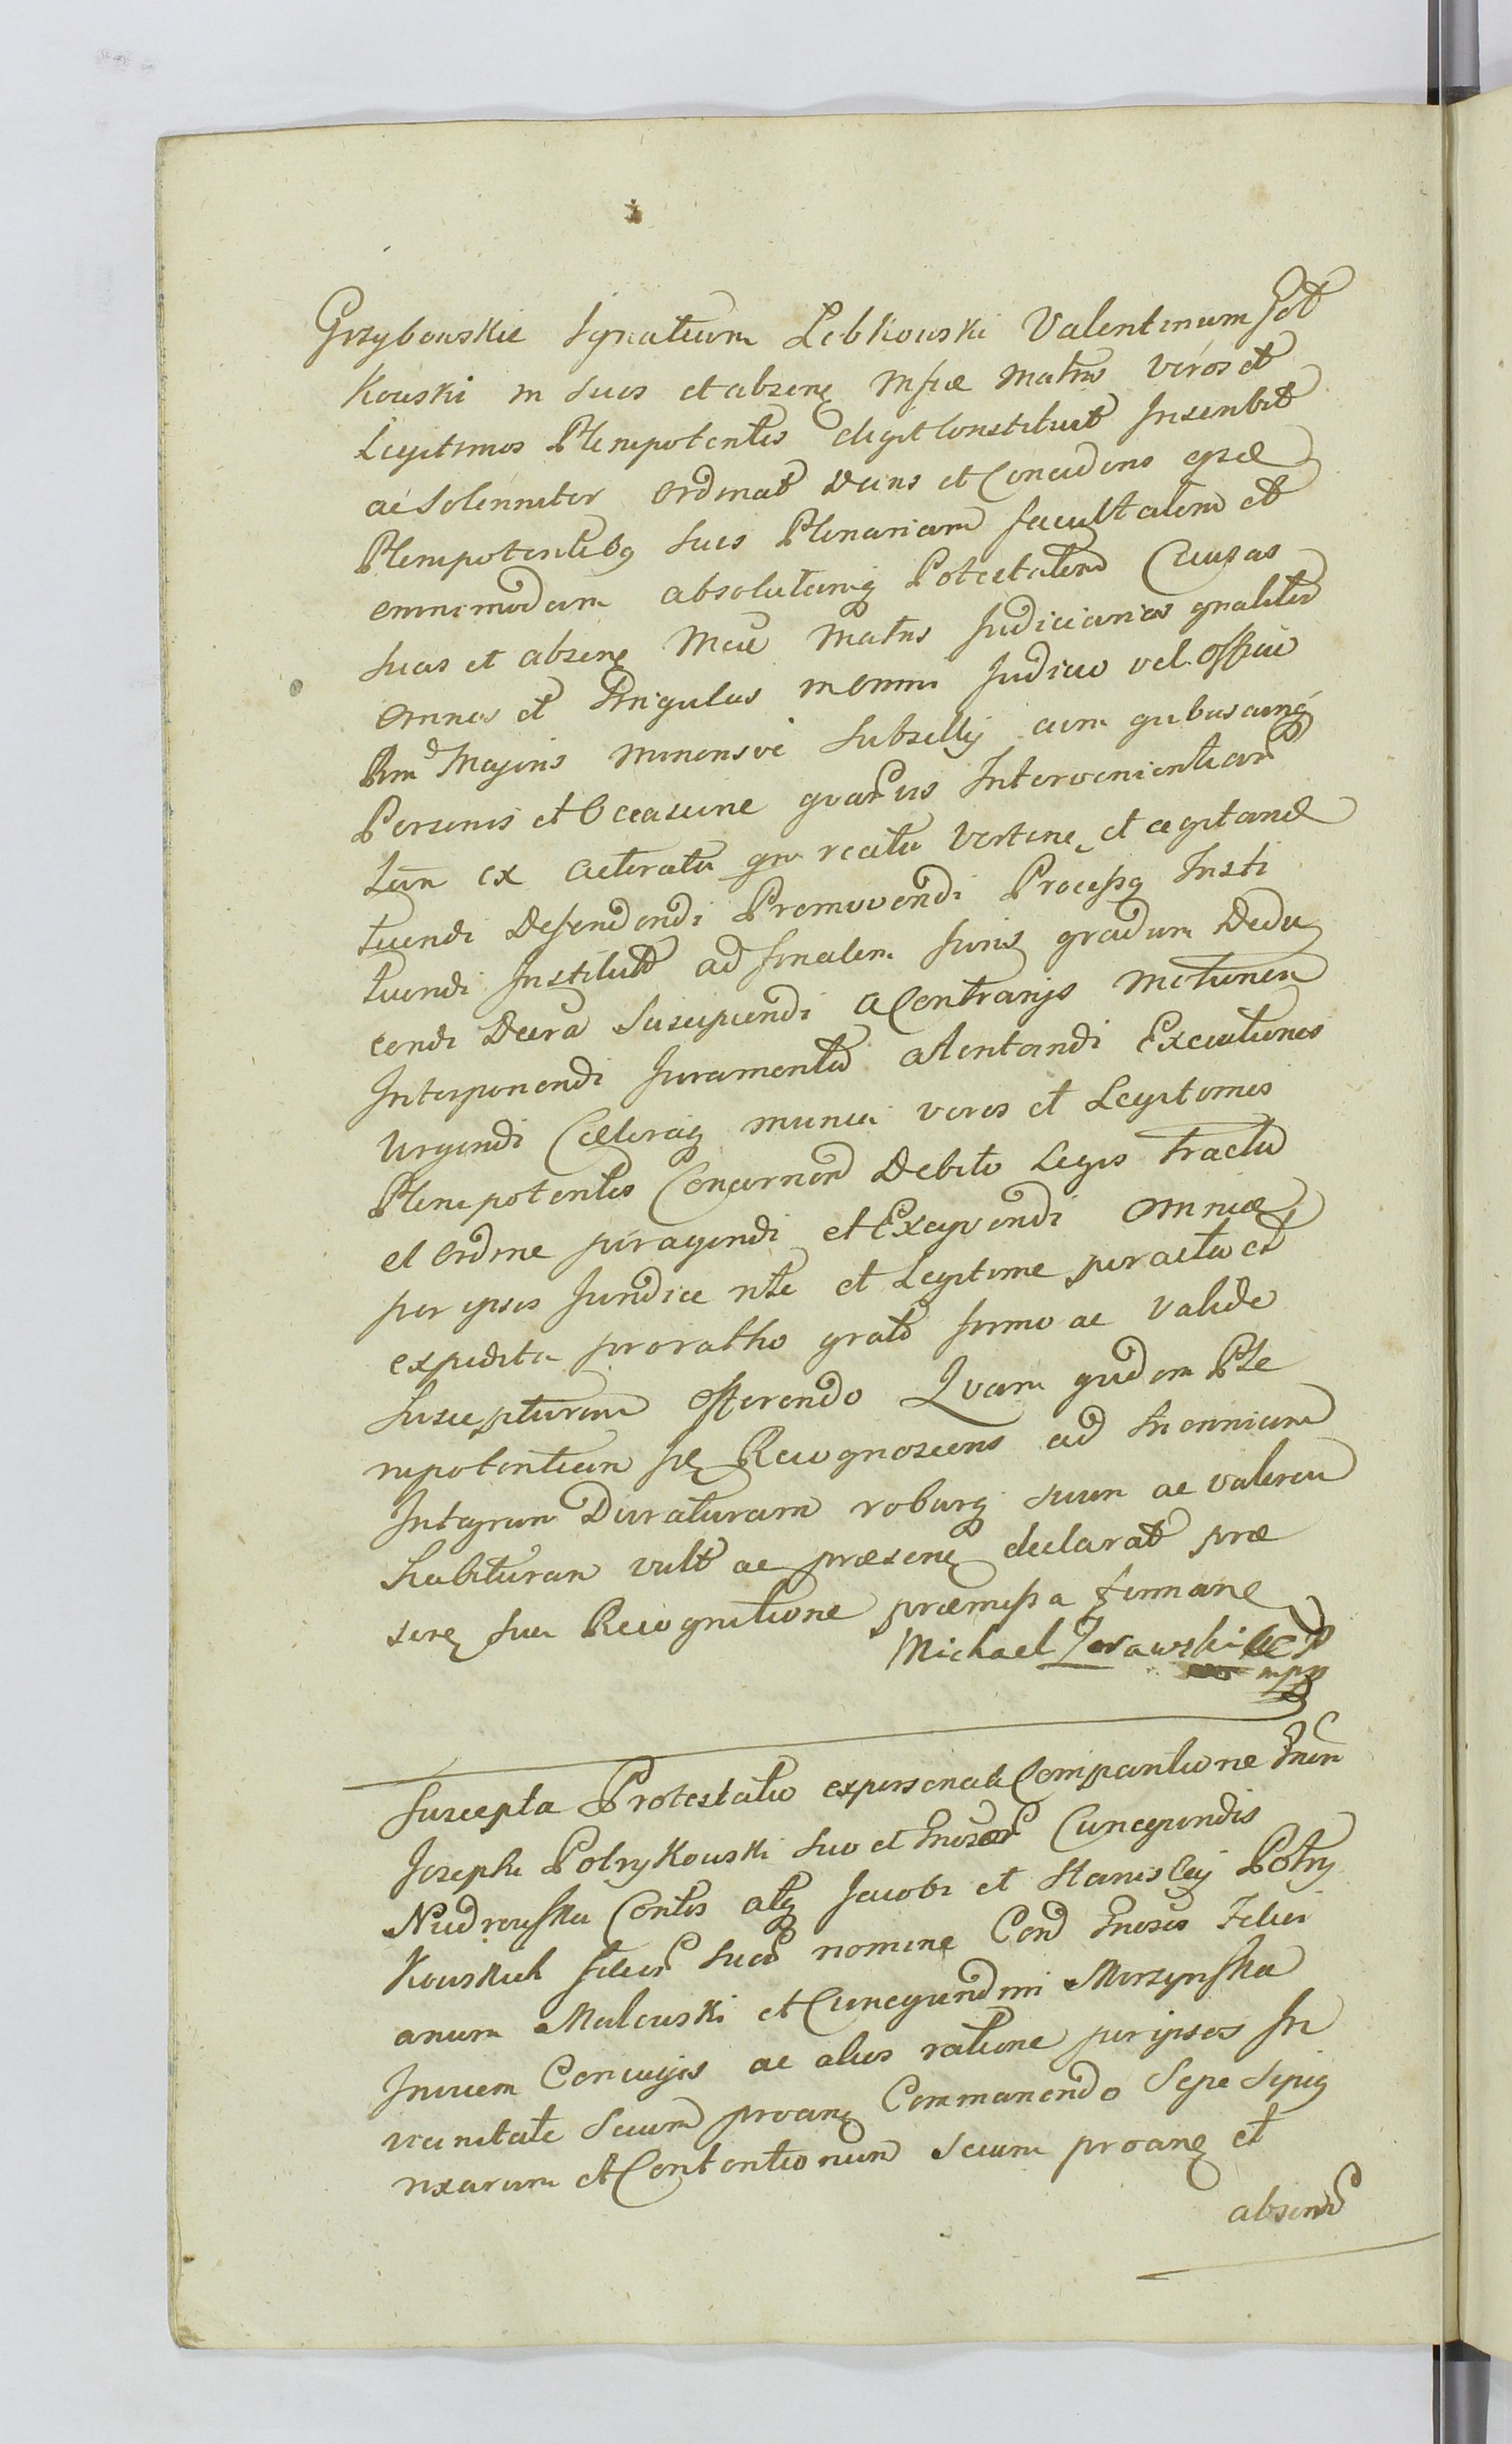 Grzybowskie Ignatium Lebkowski Valentinum Got
kowski in suos et absene Mfcæ Matris veros et
Legitimos Plenipotentes eligit Constituit Inscribit
ac solenniter ordinat Dans et Concedens ejsd
Plenipotentibq suis Plenariam facultatem et
omnimodam absolutamq Potestatem Causas
suas et absene Mcæ Matris Judiciarias gnaliter
omnes et singulas in omni Judicio vel officio
Rni Majoris minorisve Subsellij cum quibuscunq
Personis et Occasione quarumvis Intervenientiarum
tam ex actoratu qm reatu verten et agitand
tuendi Defendendi Promovendi Processq Insti
tuendi Institut ad finalem Juris gradum Dedu
cendi Decra Suscipiendi a Contrarijs Motionem
Interponendi Juramenta attentandi Executiones
Urgendi Cæteraq munia veros et Legitimos
Plenipotentes Concernen Debito Legis Tractu
et ordine peragendi et Exequendi omnia
per ipsos Juridice rite et Legitime peracta et
expedita pro ratho grato firmo ac valide
Suscepturum offerendo Quam quidem Ple
nipotentiam sæ Recognoscens ad triennium
Integrum Duraturam roburq suum ac valorem
habituram vult ac præsene declarat præ
sene sua Recognitione præmissa firmane
Michael Zorawski
mpp
Suscepta Protestatio ex personali Comparitione Gnen
Josephi Potrykowski suo et Gnosor Cunegundis
Nudrowska Contis atq Jacobi et Stanislai Potry
kowskich filior suor nomine Con Gnosos Felici
anum Malewski et Cunegundim Morzynska
Invicem Conjuges ac alios ratione per ipsos In
vicinitate Secum proane Commanendo Sepe Sepiq
rixarum et Contentionum secum proane et
absen